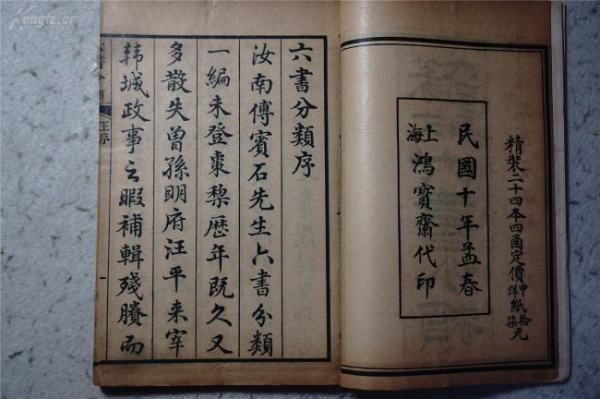 精裝二十四本四函定價中紙拾元洋紙柒元
民國十年孟春
上海鴻寶齋代印
六書分類序
汝南傅賓石先生六書分類
一編未登棗黎歷年既久又
多散失曾孫明府汪平來宰
韩城政事之暇補輯殘賸而
汪序
一